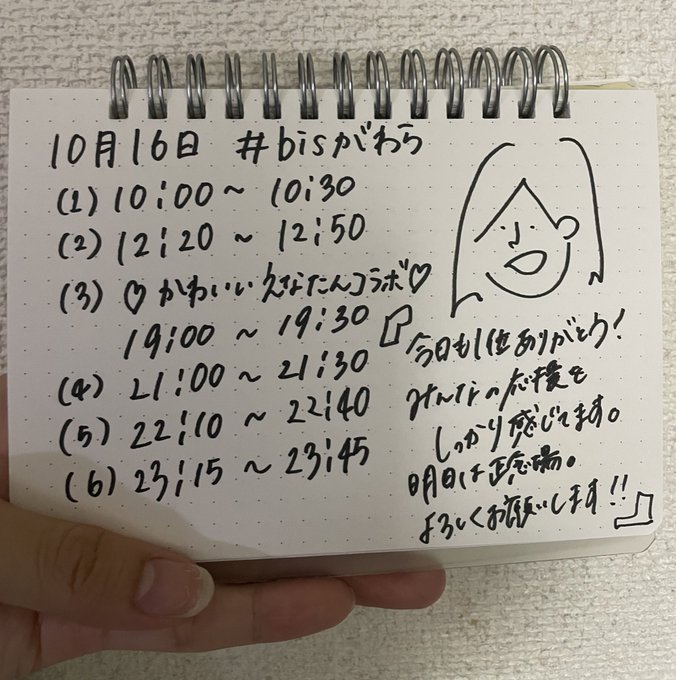 10月16日 #bisがわら
(1) 10:00~ 10:30
(2) 12:20 ~ 12:50
(3) ♡かわいいえなたんコラボ♡
19:00 ~ 19:30
(4) 21:00 ~ 21:30
(5) 22:10 ~ 22:40
(6) 23:15 ~ 23:45
「今日も1位ありがとう!
みんなの応援を
しっかり感じてます。
明日は正念場。
よろしくお願いします!!」